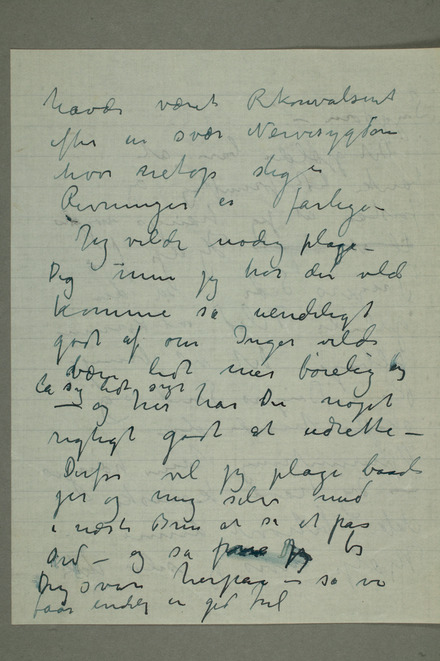 havde været Rkonvalsent
efter en svær Nervesygdom
hvor netop slige
Rivninger er farlige –
Jeg vilde nødig plage
Dig men jeg tror det vilde
komme så uendeligt
godt af om Inger vilde
være lidt mer bøielig og
la sig lidt sige
– og her har Du noget
rigtigt godt at udrette –
Derfor vil jeg plage baade
jer og mig selv med
i næste Brev at se et pas
ord – og så be
Dig svare herpaa – så vi
faar endelig en god